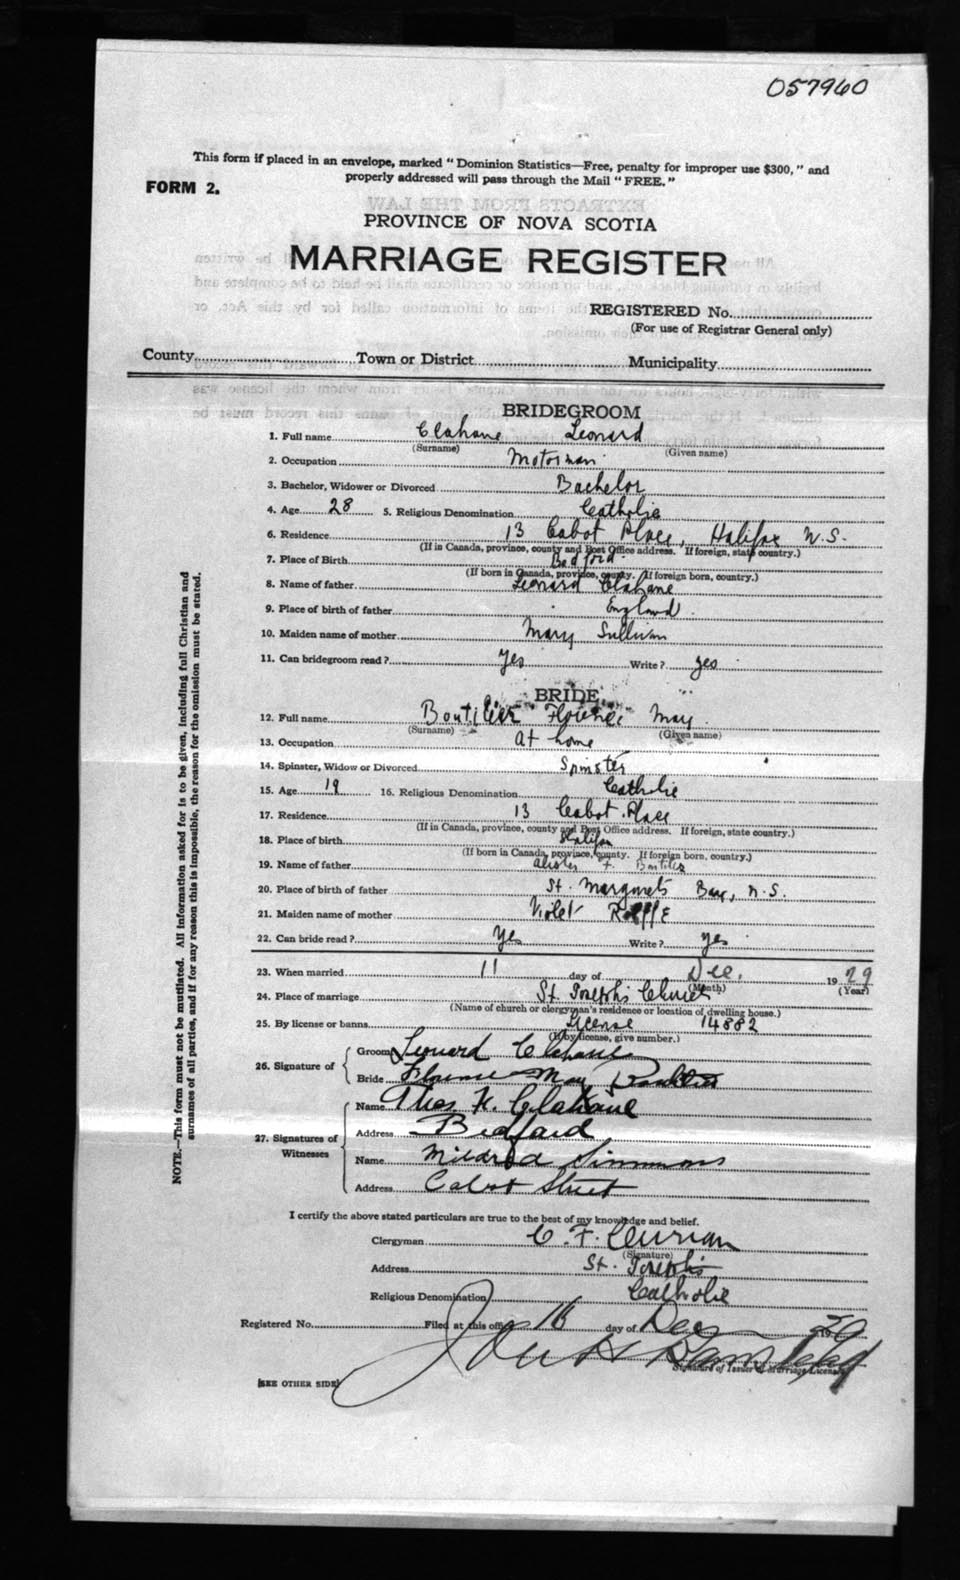 057960
This form if placed in an envelope, marked "Dominion Statistics—Free, penalty for improper use $300," and
properly addressed will pass through the Mail "FREE."
FORM 2.
PROVINCE OF NOVA SCOTIA
MARRIAGE REGISTER
REGISTERED No.
(For use of Registrar General only)
County Town or District Municipality
BRIDEGROOM
1. Full name Clahane Leonard
(Surname) (Given name)
2. Occupation Motorman
3. Bachelor, Widower or Divorced Bachelor
4. Age 28 5. Religious Denomination Catholic
6. Residence 13 Cabot Place, Halifax N.S.
(If in Canada, province, county and Post Office address. If foreign, state country.)
7. Place of Birth Bedford
(If born in Canada, province, county. If foreign born, country.)
8. Name of father Leonard Clahane
9. Place of birth of father England
10. Maiden name of mother Mary Sullivan
11. Can bridegroom read? Yes Write? yes
BRIDE
12. Full name Boutilier Florence May
(Surname) (Given name)
13. Occupation At home
14. Spinster, Widow or Divorced Spinster
15. Age 19 16. Religious Denomination Catholic
17. Residence 13 Cabot Place
(If in Canada, province, county and Post Office address. If foreign, state country.)
18. Place of birth Halifax
(If born in Canada, province, county. If foreign born, country.)
19. Name of father
20. Place of birth of father St. Margarets Bay, N.S.
21. Maiden name of mother Violet
22. Can bride read? Yes Write? yes
23. When married 11 day of Dec. 1929
(Month) (Year)
24. Place of marriage St. Joseph's Church
(Name of church or clergyman's residence or location of dwelling house.)
25. By license or banns License 14882
(If by license, give number.)
26. Signature of Groom Leonard Clahane
Bride Florence May Boutilier
27. Signatures of Witnesses Name Thos. F. Clahane
Address Bedford
Name Mildred Simmons
Address Cabot Street
I certify the above stated particulars are true to the best of my knowledge and belief.
Clergyman C. F. Curran
(Signature)
Address St. Joseph's
Religious Denomination Catholic
Registered No. Filed at this office 16 day of Dec 1929
John H
Signature of Issuer of Marriage Licenses
[SEE OTHER SIDE]
NOTE.—This form must not be mutilated. All information asked for is to be given, including full Christian and
surnames of all parties, and if for any reason this is impossible, the reason for the omission must be stated.